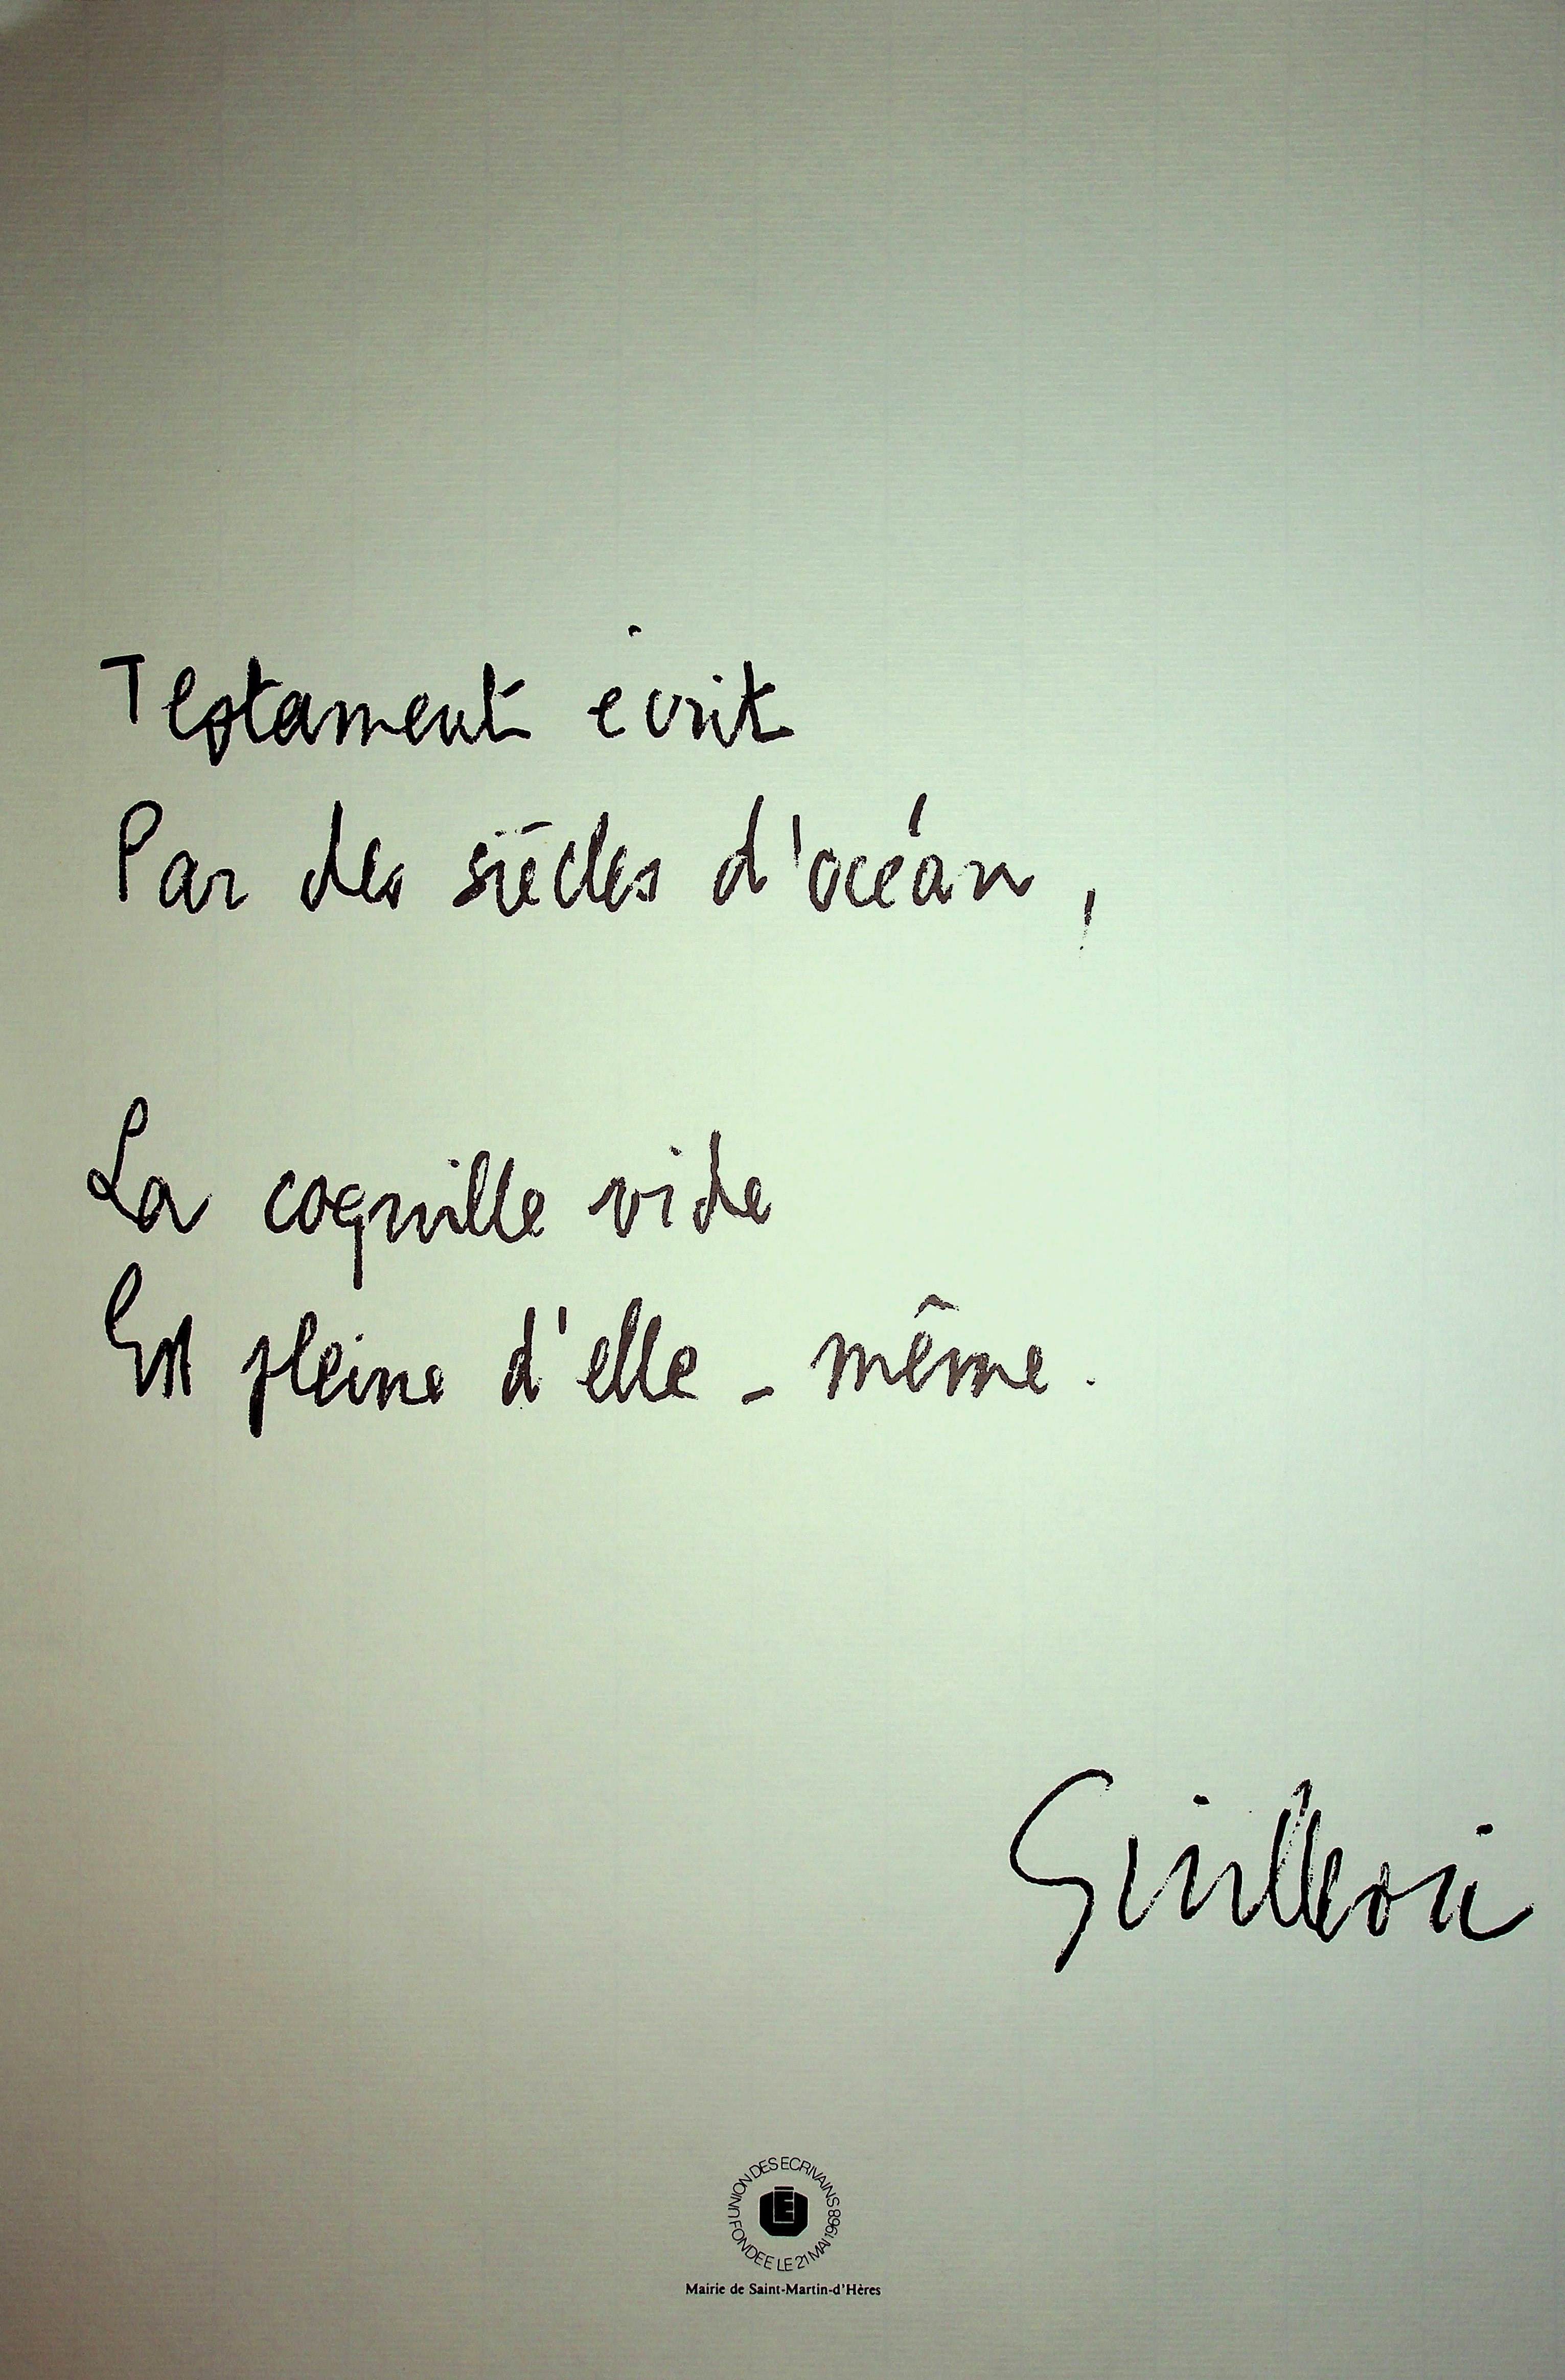 Testament écrit
Par des siècles d'océan,
La coquille vide
Est pleine d'elle-même.
Guillevic
UNION DES ECRIVAINS
FONDEE LE 21 MAI 1968
UE
Mairie de Saint-Martin-d'Hères